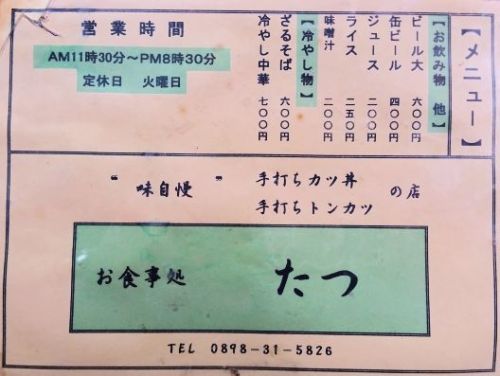 【メニュー】
【お飲み物 他】
ビール大 六〇〇円
缶ビール 四〇〇円
ジュース 二〇〇円
ライス 二五〇円
味噌汁 二〇〇円
【冷やし物】
ざるそば 六〇〇円
冷やし中華 七〇〇円
営業時間
AM11時30分～PM8時30分
定休日 火曜日
“味自慢” 手打ちカツ丼
手打ちトンカツ
の店
お食事処 たつ
TEL 0898-31-5826